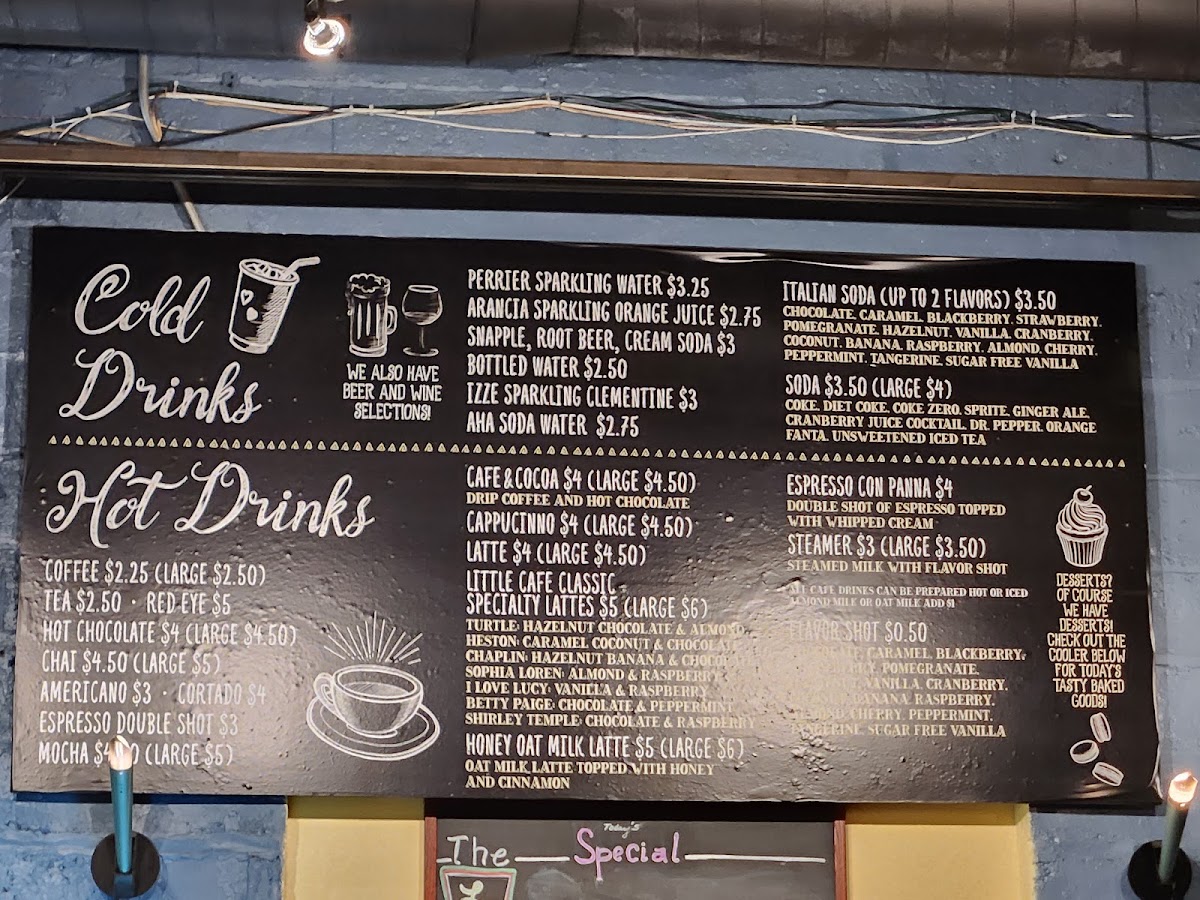 Cold
Drinks
WE ALSO HAVE
BEER AND WINE
SELECTIONS!
PERRIER SPARKLING WATER $3.25
ARANCIA SPARKLING ORANGE JUICE $2.75
SNAPPLE, ROOT BEER, CREAM SODA $3
BOTTLED WATER $2.50
IZZE SPARKLING CLEMENTINE $3
AHA SODA WATER $2.75
ITALIAN SODA (UP TO 2 FLAVORS) $3.50
CHOCOLATE, CARAMEL, BLACKBERRY, STRAWBERRY,
POMEGRANATE, HAZELNUT, VANILLA, CRANBERRY,
COCONUT, BANANA, RASPBERRY, ALMOND, CHERRY,
PEPPERMINT, TANGERINE, SUGAR FREE VANILLA
SODA $3.50 (LARGE $4)
COKE, DIET COKE, COKE ZERO, SPRITE, GINGER ALE,
CRANBERRY JUICE COCKTAIL, DR. PEPPER, ORANGE
FANTA, UNSWEETENED ICED TEA
Hot Drinks
COFFEE $2.25 (LARGE $2.50)
TEA $2.50 · RED EYE $5
HOT CHOCOLATE $4 (LARGE $4.50)
CHAI $4.50 (LARGE $5)
AMERICANO $3 · CORTADO $4
ESPRESSO DOUBLE SHOT $3
MOCHA (LARGE $5)
CAFE & COCOA $4 (LARGE $4.50)
DRIP COFFEE AND HOT CHOCOLATE
CAPPUCINNO $4 (LARGE $4.50)
LATTE $4 (LARGE $4.50)
LITTLE CAFE CLASSIC
SPECIALTY LATTES $5 (LARGE $6)
TURTLE: HAZELNUT CHOCOLATE & ALMOND
HESTON: CARAMEL COCONUT & CHOCOLATE
CHAPLIN: HAZELNUT BANANA & CHOCOLATE
SOPHIA LOREN: ALMOND & RASPBERRY
I LOVE LUCY: VANILLA & RASPBERRY
BETTY PAIGE: CHOCOLATE & PEPPERMINT
SHIRLEY TEMPLE: CHOCOLATE & RASPBERRY
HONEY OAT MILK LATTE $5 (LARGE $6)
OAT MILK LATTE TOPPED WITH HONEY
AND CINNAMON
ESPRESSO CON PANNA $4
DOUBLE SHOT OF ESPRESSO TOPPED
WITH WHIPPED CREAM
STEAMER $3 (LARGE $3.50)
STEAMED MILK WITH FLAVOR SHOT
ALL CAFE DRINKS CAN BE PREPARED HOT OR ICED
ALMOND MILK OR OAT MILK ADD $1
FLAVOR SHOT $0.50
CARAMEL, BLACKBERRY,
POMEGRANATE,
VANILLA, CRANBERRY,
BANANA, RASPBERRY,
CHERRY, PEPPERMINT,
TANGERINE, SUGAR FREE VANILLA
DESSERTS?
OF COURSE
WE HAVE
DESSERTS!
CHECK OUT THE
COOLER BELOW
FOR TODAY'S
TASTY BAKED
GOODS!
Today's
The Special